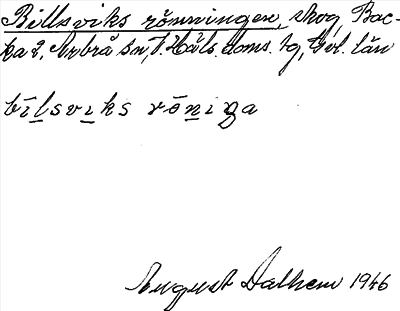 Billsviks römningen, skog, Bac-
ka 2, Arbrå sn, V. Häls. doms. tg, Gvl. län
bīlsviks rōniga
August Dalhem 1946